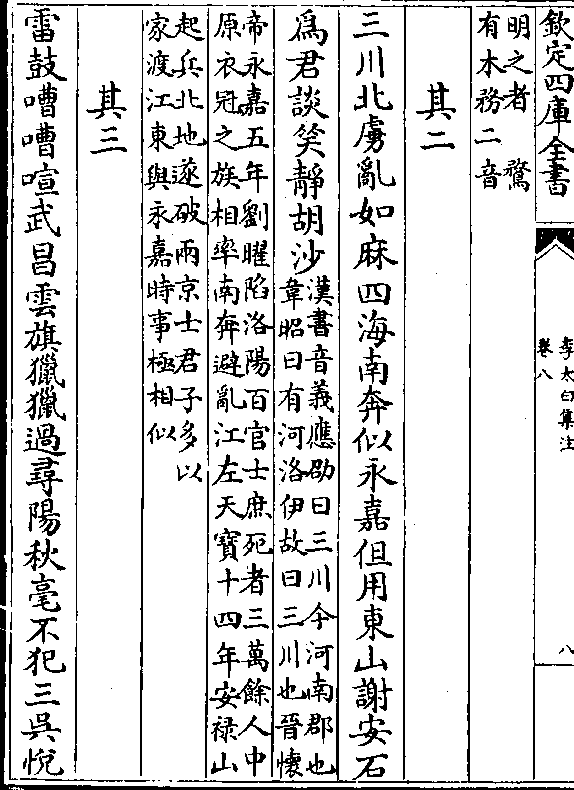 欽定四庫全書
李太白集注
卷八
八
明之者 鶩
有木務二音
其二
三川北虜亂如麻四海南奔似永嘉但用東山謝安石
爲君談笑靜胡沙
漢書音義應劭曰三川今河南郡也
韋昭曰有河洛伊故曰三川也晉懷
帝永嘉五年劉曜陷洛陽百官士庶死者三萬餘人中
原衣冠之族相率南奔避亂江左天寶十四年安禄山
起兵北地遂破兩京士君子多以
家渡江東與永嘉時事極相似
其三
雷鼓嘈嘈喧武昌雲旗獵獵過尋陽秋毫不犯三吳悅